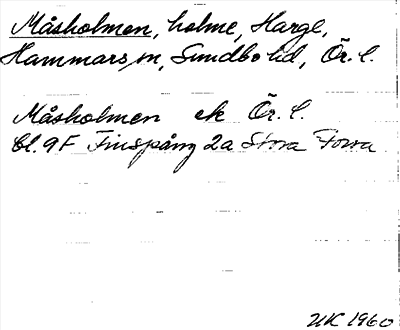 Måsholmen, holme, Harge,
Hammars sn, Sundbo hd, Ör. l.
Måsholmen ek Ör. l.
bl. 9F Finspång 2a Stora Forsa
UK 1960